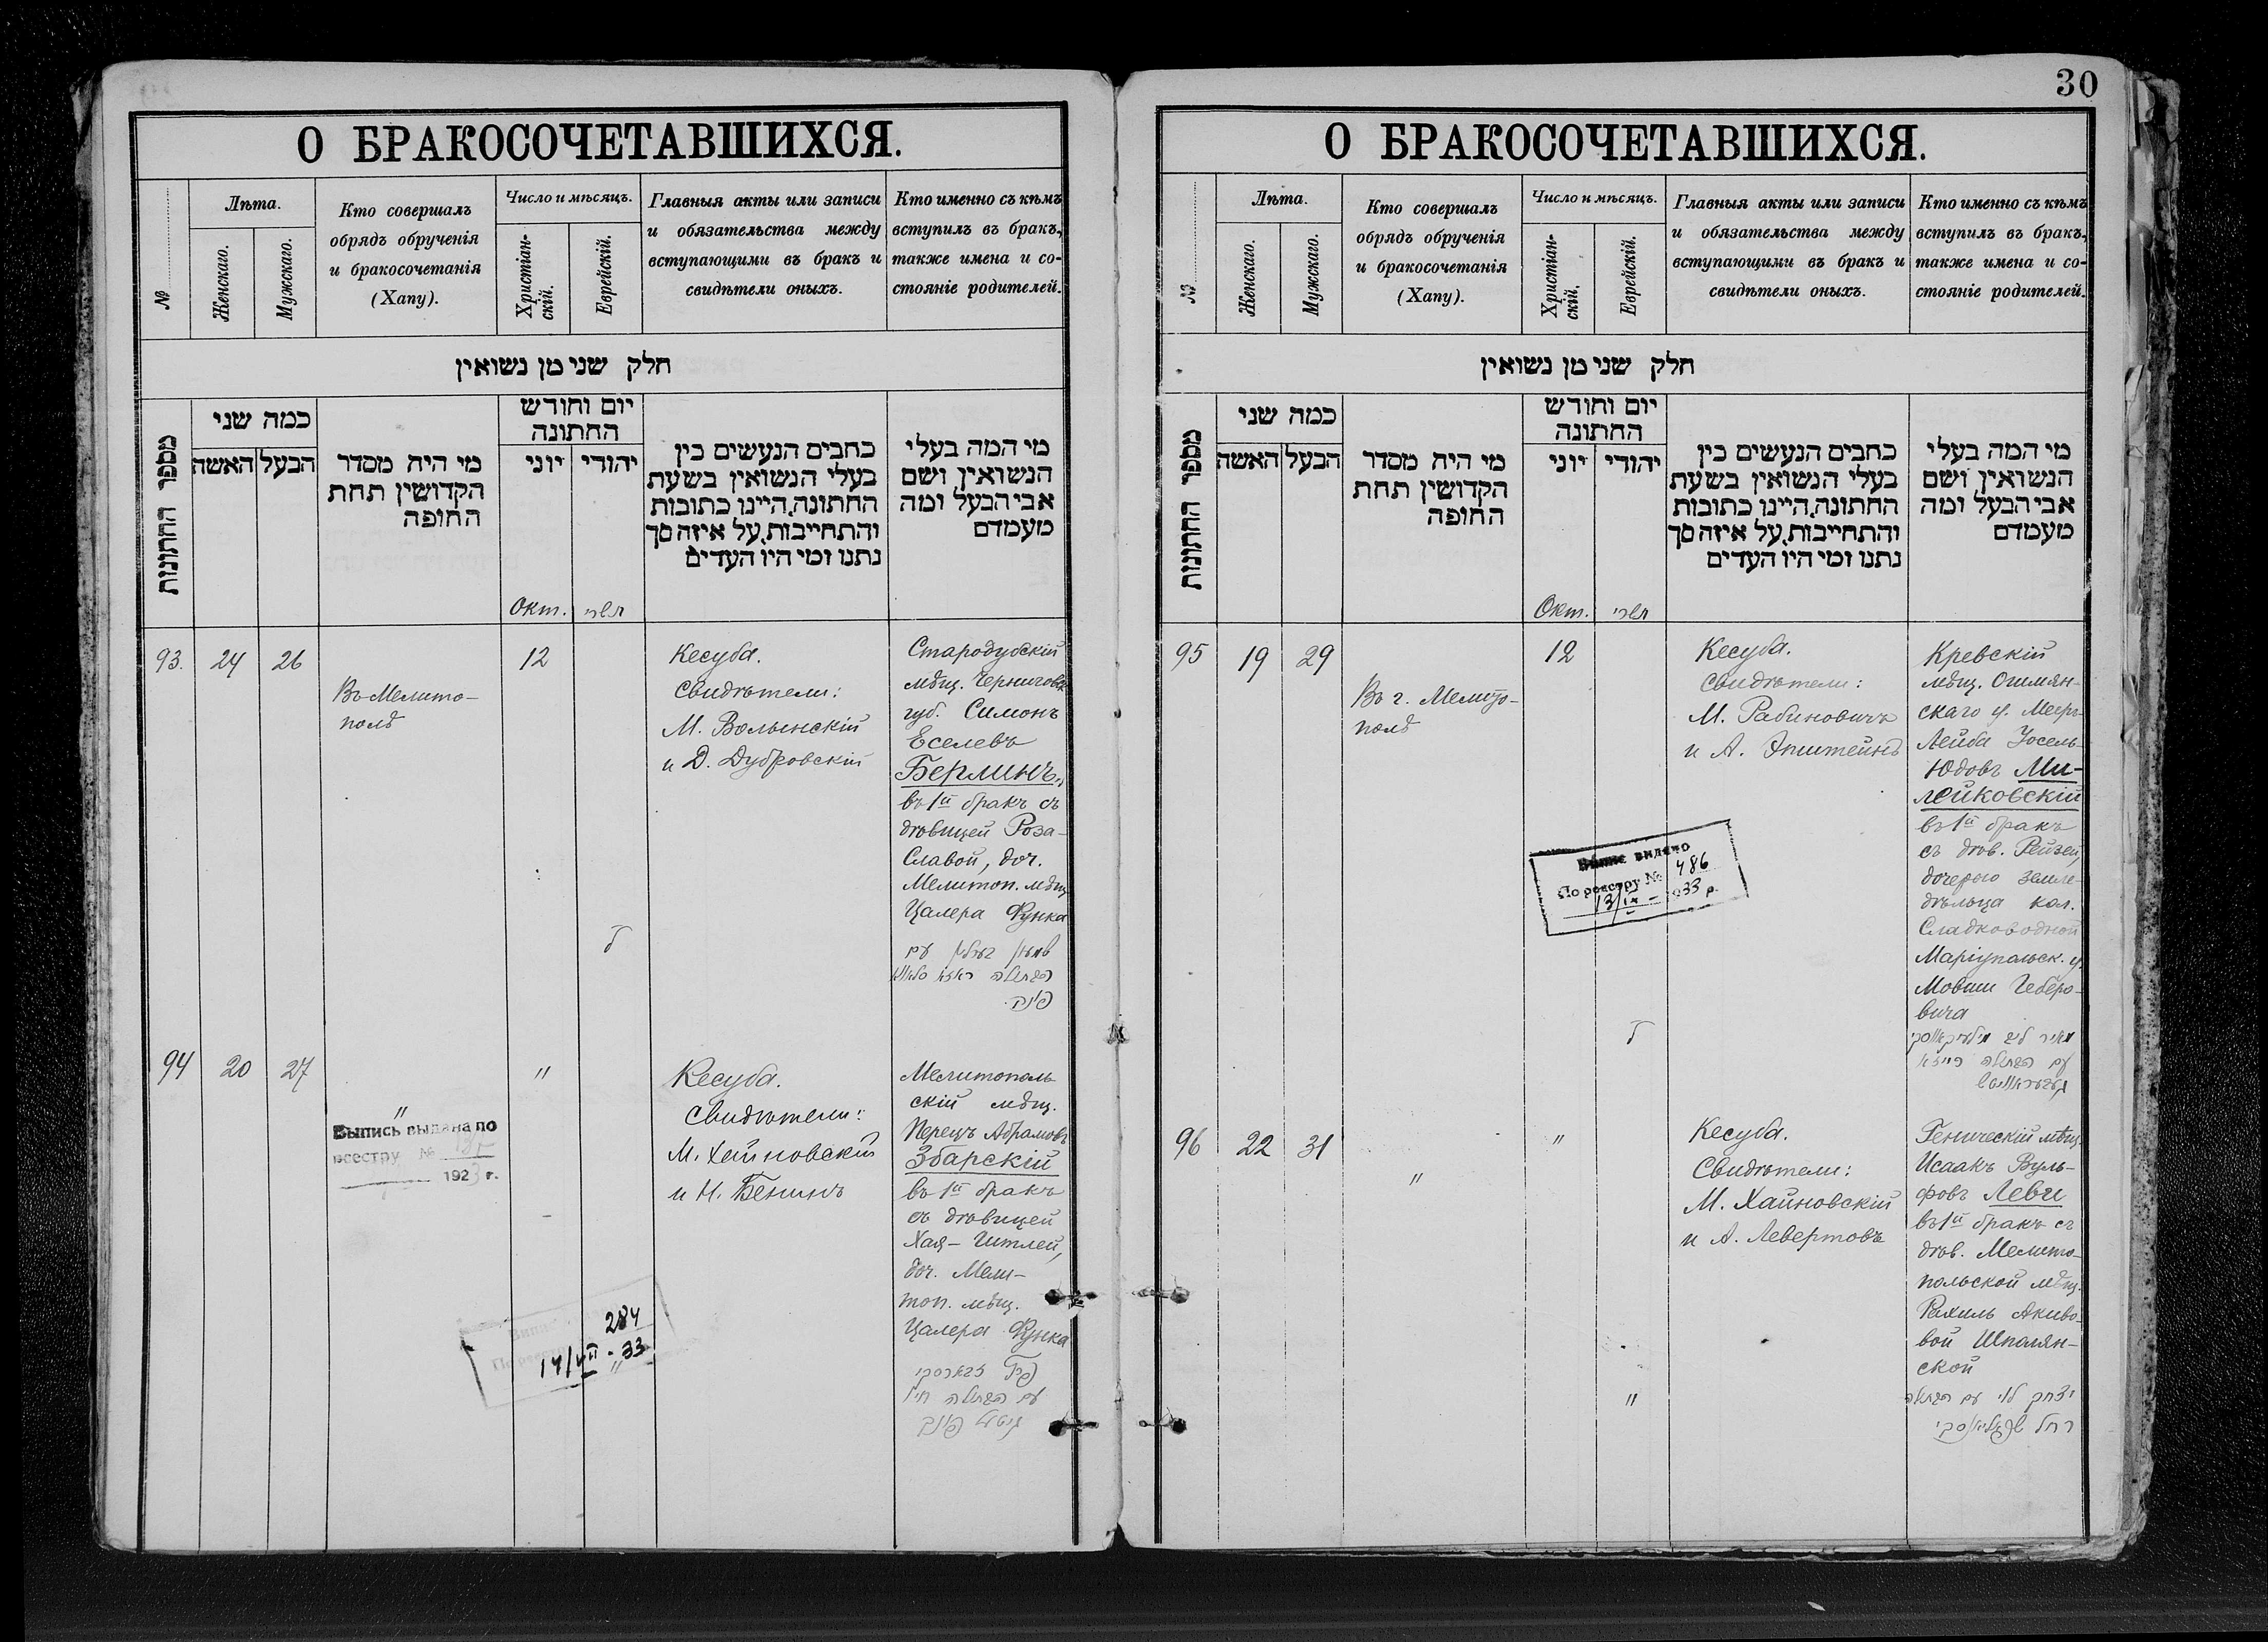 О БРАКОСОЧЕТАВШИХСЯ.
№
Лѣта.
Женскаго.
Мужскаго.
Кто совершалъ
обрядъ обрученія
и бракосочетанія
(Хапу).
Число и мѣсяцъ.
Христіан-
скій.
Еврейскій.
Главныя акты или записи
и обязательства между
вступающими въ бракъ и
свидѣтели оныхъ.
Кто именно съ кѣмъ
вступилъ въ бракъ,
также имена и со-
стояніе родителей.
חלק שני מן נשואין
מספר החתונות
כמה שני
האשה
הבעל
מי היה מסדר
הקדושין תחת
החופה
יום וחודש
החתונה
יוני
יהודי
כתבים הנעשים בין
בעלי הנשואין בשעת
החתונה, היינו כתובות
והתחייבות, על איזה סך
נתנו ומי היו העדים
מי המה בעלי
הנשואין ושם
אבי הבעל ומה
מעמדם
Окт.
תשרי
93.
24
26
Въ Мелито-
полѣ
12
ל
Кесуба.
Свидѣтели:
М. Волынскій
и Д. Дубровскій
Стародубскій
мѣщ. Черниговск
губ. Симонъ
Еселевъ
Берлинъ,
въ 1й бракъ съ
дѣвицей Роза-
Славой, доч.
Мелитоп. мѣщ
Цалера Функа
שמעון בערלין עם
הבתולה ראזא סלאווא
פונק.
94
20
27
"
Выпись выдана по
реестру №
1923 г.
"
Кесуба.
Свидѣтели:
М. Хайновскій
и Н. Бенинъ
284
14/VII - 33
Мелитополь-
скій мѣщ.
Перецъ Абрамовъ
Збарскій
въ 1й бракъ
съ дѣвицей
Хая-Гитлей,
доч. Мели-
топ. мѣщ.
Цалера Функа
פרץ זבארסקי
עם הבתולה חי'
גיטל פונק
30
О БРАКОСОЧЕТАВШИХСЯ.
№
Лѣта.
Женскаго.
Мужскаго.
Кто совершалъ
обрядъ обрученія
и бракосочетанія
(Хапу).
Число и мѣсяцъ.
Христіан-
скій.
Еврейскій.
Главныя акты или записи
и обязательства между
вступающими въ бракъ и
свидѣтели оныхъ.
Кто именно съ кѣмъ
вступилъ въ бракъ,
также имена и со-
стояніе родителей.
חלק שני מן נשואין
מספר החתונות
כמה שני
האשה
הבעל
מי היה מסדר
הקדושין תחת
החופה
יום וחודש
החתונה
יוני
יהודי
כתבים הנעשים בין
בעלי הנשואין בשעת
החתונה, היינו כתובות
והתחייבות, על איזה סך
נתנו ומי היו העדים
מי המה בעלי
הנשואין ושם
אבי הבעל ומה
מעמדם
Окт.
תשרי
95
19
29
Въ г. Мелито-
полѣ
12
ל
Кесуба.
Свидѣтели:
М. Рабиновичъ
и А. Эпштейнъ
Випис видано
По реєстру № 486
13/IX - 1933 р.
Кревскій
мѣщ. Ошмян-
скаго у. Мееръ-
Лейба Іосель-
Юдовъ Ми-
лейковскій
въ 1й бракъ
съ дѣв. Рейзей,
дочерью земле-
дѣльца кол.
Сладководной
Маріупольск. у.
Мовши Геберо-
вича
מאיר ליב מילייקאווסקי
עם הבתולה רייזא
96
22
31
"
"
"
Кесуба.
Свидѣтели:
М. Хайновскій
и А. Левертовъ
Геническій мѣщ.
Исаакъ Вуль-
фовъ Леви
въ 1й бракъ съ
дѣв. Мелито-
польской мѣщ.
Рахиль Акиво-
вой Шполян-
ской
יצחק לוי עם הבתולה
רחל שפאליאנסקי